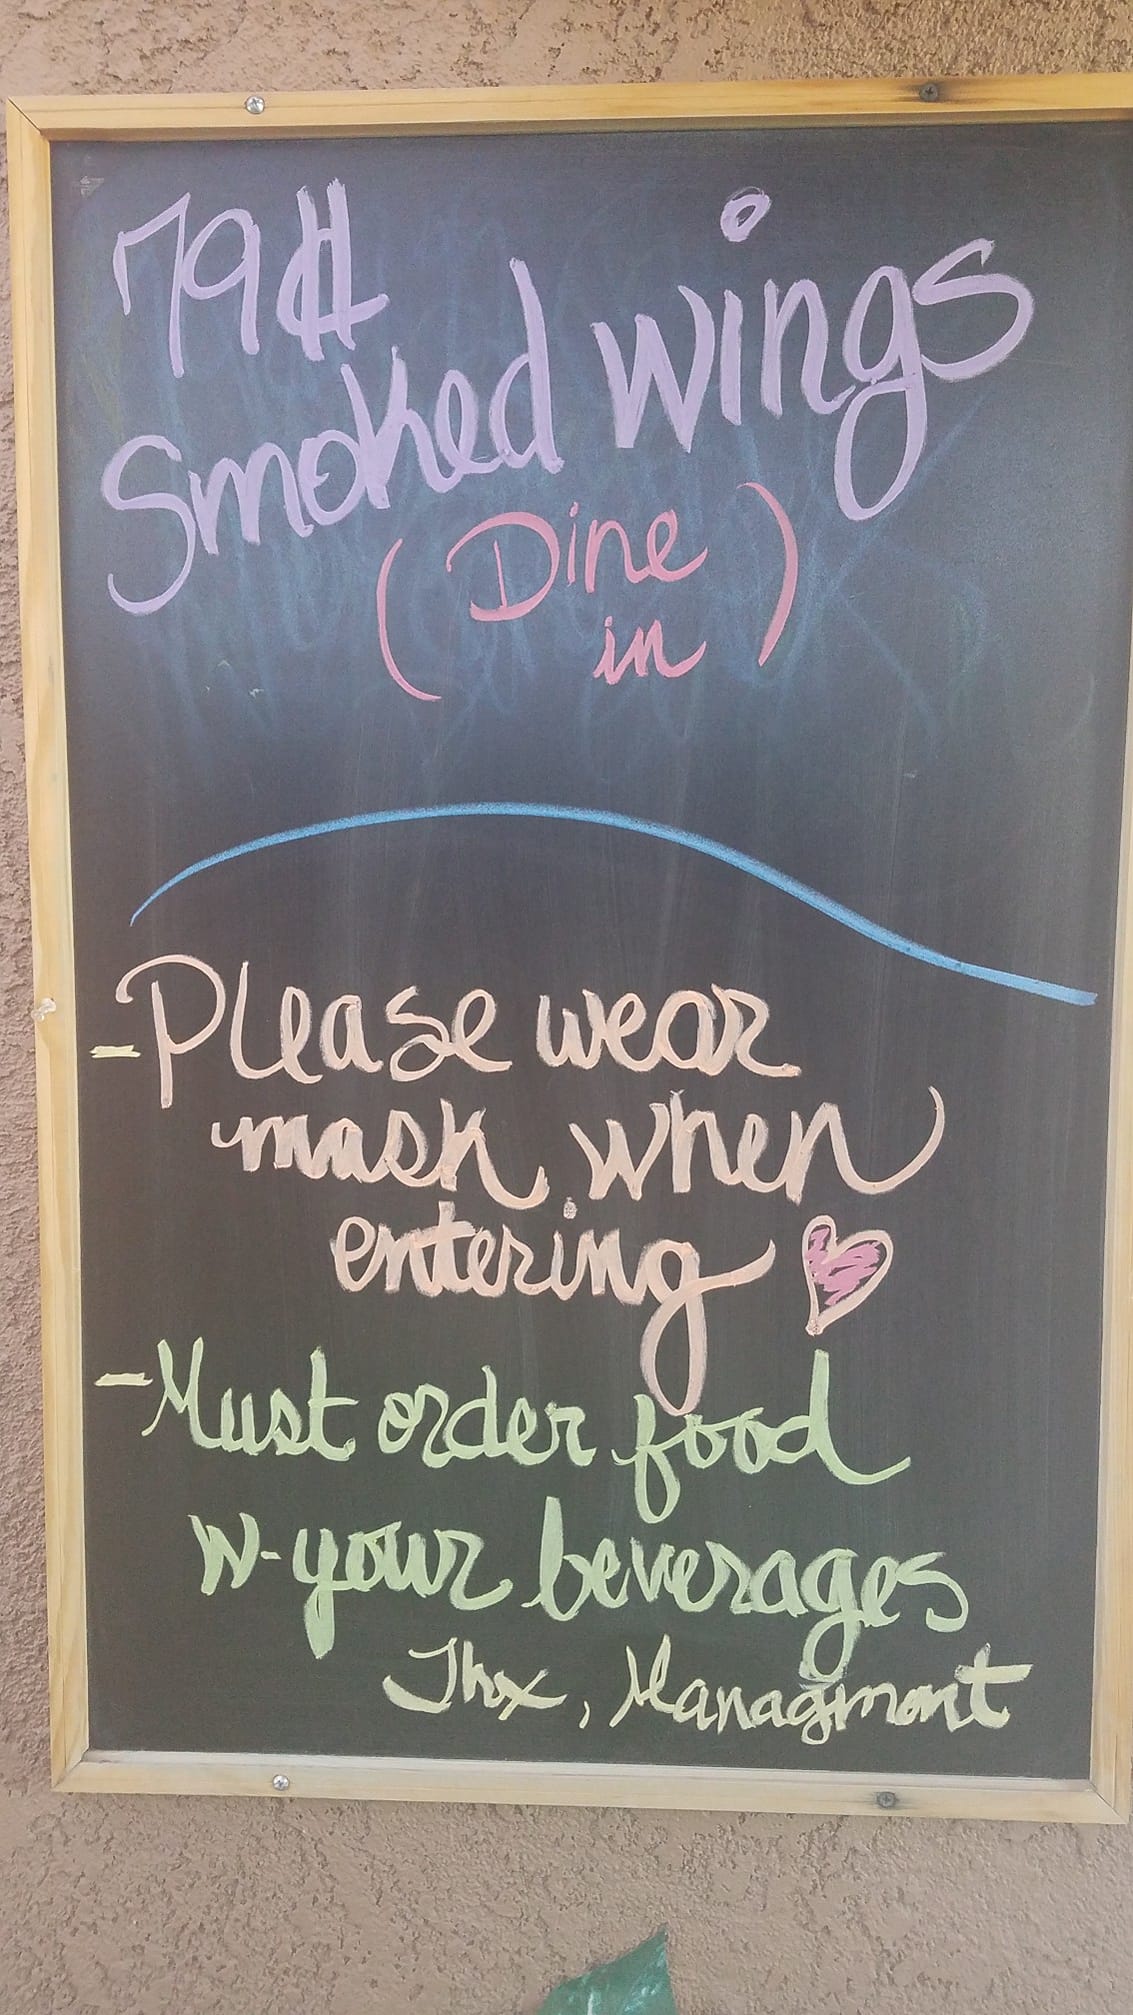 79¢
Smoked wings
(Dine
in)
-Please wear
mask when
entering
-Must order food
w-your beverages
Thx, Managment